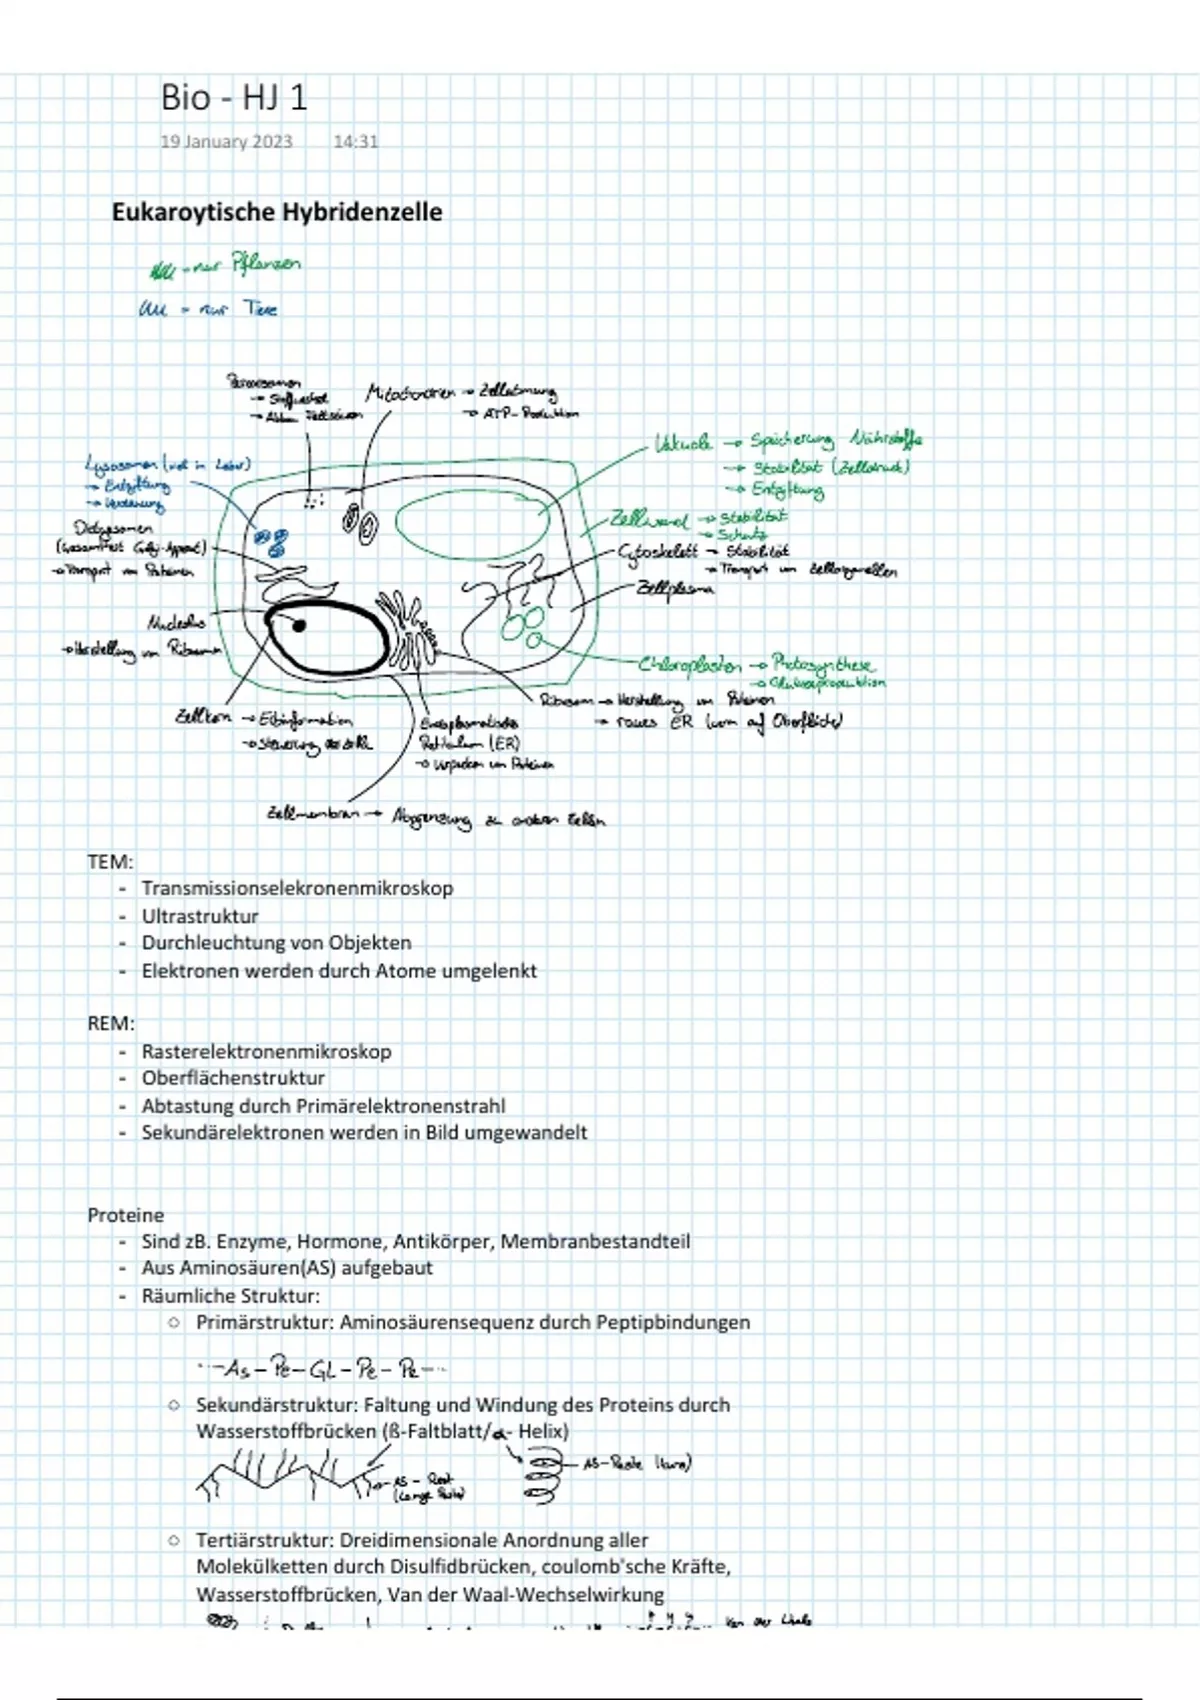 Bio - HJ 1
19 January 2023 14:31
Eukaroytische Hybridenzelle
= nur Pflanzen
= nur Tiere
Peroxisomen
→ Stoffwechsel
→ Abbau Fettsäuren
Mitochondrien → Zellatmung
→ ATP-Produktion
Vakuole → Speicherung Nährstoffe
→ Stabilität (Zelldruck)
→ Entgiftung
Lysosomen (viel in Leber)
→ Entgiftung
→ Verdauung
Zellwand → Stabilität
→ Schutz
Dictyosomen
(Gesamtheit Golgi-Apparat)
→ Transport von Proteinen
Cytoskelett → Stabilität
→ Transport von Zellorganellen
Zellplasma
Nucleolus
→ Herstellung von Ribosomen
Chloroplasten → Photosynthese
→ Glukoseproduktion
Ribosom → Herstellung von Proteinen
→ raues ER (wenn auf Oberfläche)
Zellkern → Erbinformation
→ Steuerung der Zelle
Endoplasmatisches
Retikulum (ER)
→ Verpacken von Proteinen
Zellmembran → Abgrenzung zu anderen Zellen
TEM:
- Transmissionselekronenmikroskop
- Ultrastruktur
- Durchleuchtung von Objekten
- Elektronen werden durch Atome umgelenkt
REM:
- Rasterelektronenmikroskop
- Oberflächenstruktur
- Abtastung durch Primärelektronenstrahl
- Sekundärelektronen werden in Bild umgewandelt
Proteine
- Sind zB. Enzyme, Hormone, Antikörper, Membranbestandteil
- Aus Aminosäuren(AS) aufgebaut
- Räumliche Struktur:
○ Primärstruktur: Aminosäurensequenz durch Peptipbindungen
···-As-Pe-GL-Pe-Pe-···
○ Sekundärstruktur: Faltung und Windung des Proteins durch
Wasserstoffbrücken (ß-Faltblatt/α- Helix)
AS-Reste (kurz)
AS - Rest
(Lange Reste)
○ Tertiärstruktur: Dreidimensionale Anordnung aller
Molekülketten durch Disulfidbrücken, coulomb'sche Kräfte,
Wasserstoffbrücken, Van der Waal-Wechselwirkung
Van der Waals